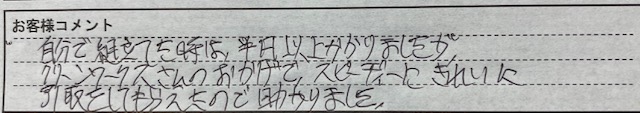 お客様コメント
自分で組立てた時は、半日以上かかりましたが、
グリーンワークスさんのおかげで、スピーディーに きれいに
引取をしてもらえたので助かりました。